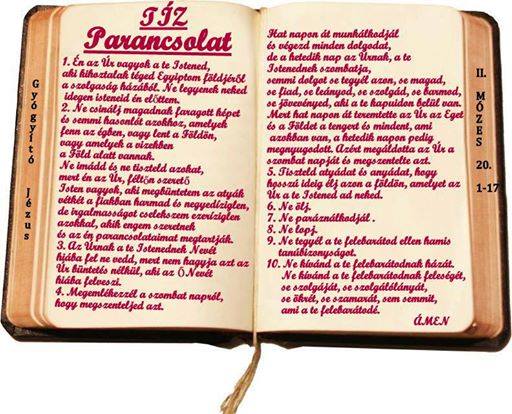 Gyógyító Jézus
TÍZ
Parancsolat
1. Én az Úr vagyok a te Istened,
aki kihoztalak téged Egyiptom földjéről
a szolgaság házából. Ne legyenek neked
idegen isteneid én előttem.
2. Ne csinálj magadnak faragott képet
és semmi hasonlót azokhoz, amelyek
fenn az égben, vagy lent a Földön,
vagy amelyek a vizekben
a Föld alatt vannak.
Ne imádd és ne tiszteld azokat,
mert én az Úr, féltőn szerető
Isten vagyok, aki megbüntetem az atyák
vétkét a fiakban harmad és negyedíziglen,
de irgalmasságot cselekszem ezeríziglen
azokkal, akik engem szeretnek
és az én parancsolataimat megtartják.
3. Az Úrnak a te Istenednek Nevét
hiába fel ne vedd, mert nem hagyja azt az
Úr büntetés nélkül, aki az Ő Nevét
hiába felveszi.
4. Megemlékezzél a szombat napról,
hogy megszenteljed azt.
Hat napon át munkálkodjál
és végezd minden dolgodat,
de a hetedik nap az Úrnak, a te
Istenednek szombatja,
semmi dolgot se tegyél azon, se magad,
se fiad, se leányod, se szolgád, se barmod,
se jövevényed, aki a te kapuidon belül van.
Mert hat napon át teremtette az Úr az Eget
és a Földet a tengert és mindent, ami
azokban van, a hetedik napon pedig
megnyugodott. Azért megáldotta az Úr a
szombat napját és megszentelte azt.
5. Tiszteld atyádat és anyádat, hogy
hosszú ideig élj azon a földön, amelyet az
Úr a te Istened ad neked.
6. Ne ölj.
7. Ne paráználkodjál .
8. Ne lopj.
9. Ne tegyél a te felebarátod ellen hamis
tanúbizonyságot.
10. Ne kívánd a te felebarátodnak házát.
Ne kívánd a te felebarátodnak feleségét,
se szolgáját, se szolgálólányát,
se ökrét, se szamarát, sem semmit,
ami a te felebarátodé.
ÁMEN
II. MÓZES 20. 1-17